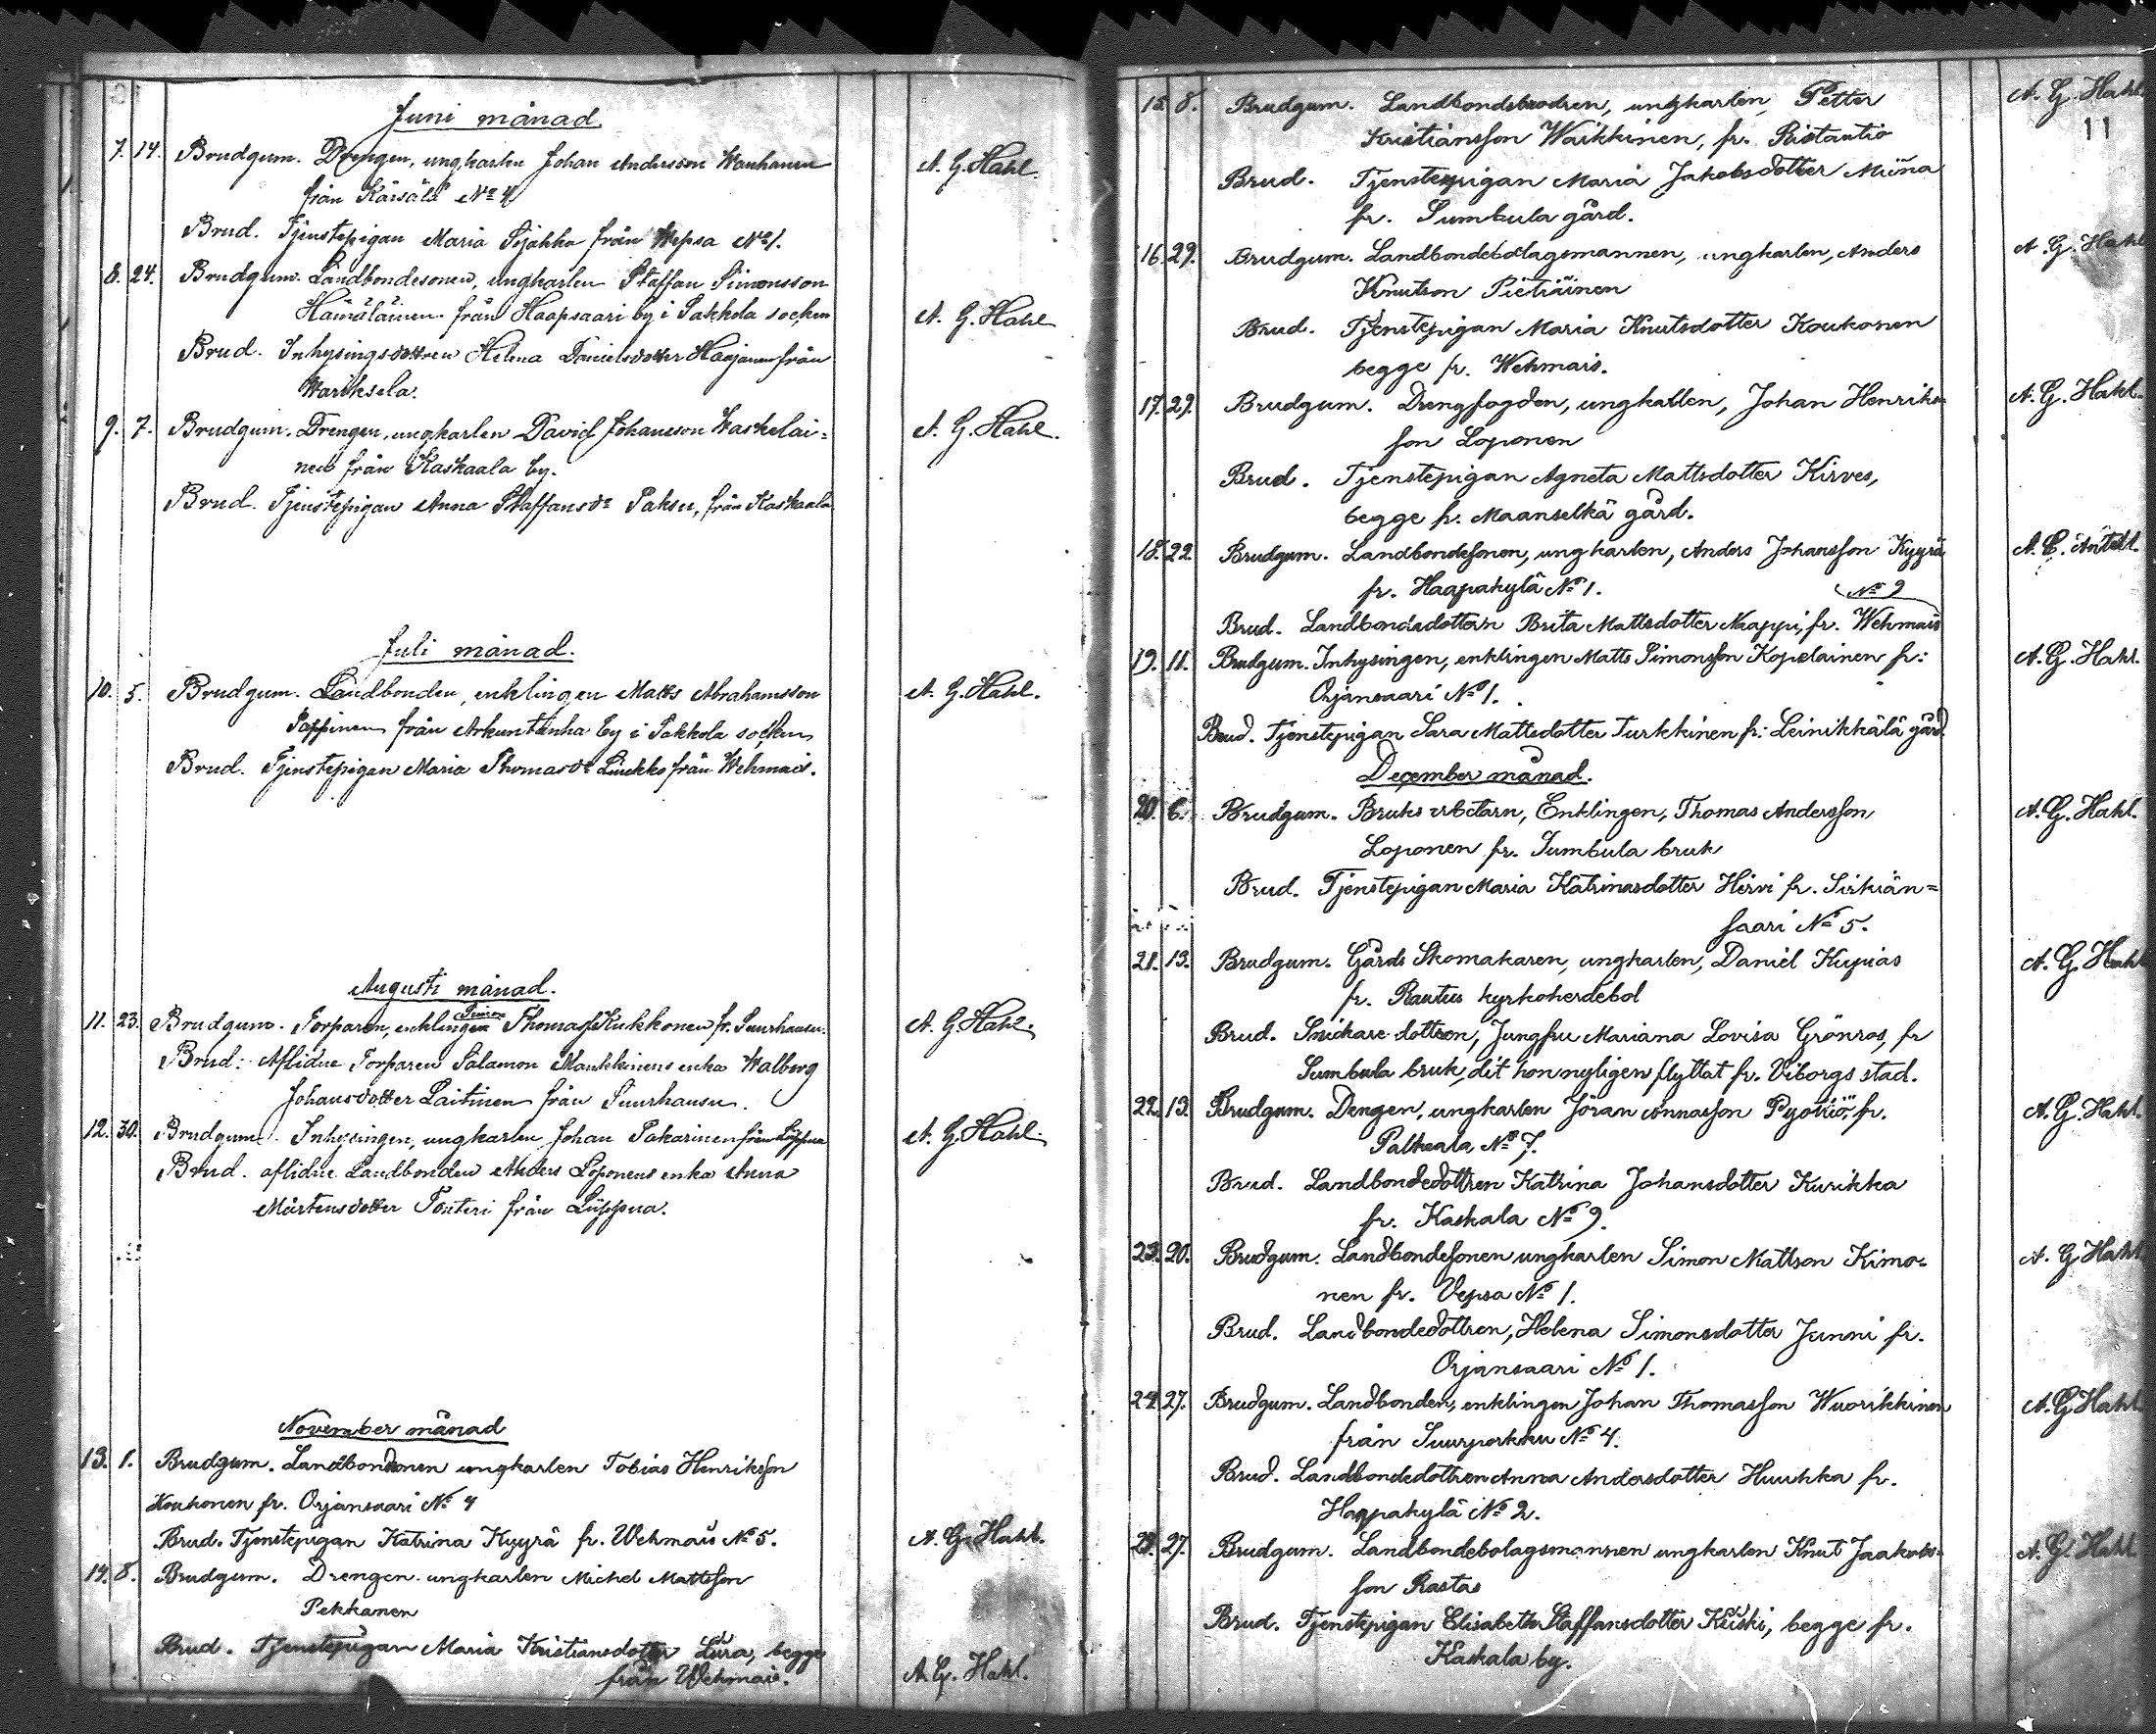 Juni månad.
7. 14. Brudgum. Drengen, ungkarlen Johan Andersson Wauhanen A. G. Hahl.
från Kärsälä No 4
Brud. Tjenstepigan Maria Sijakka från Wepsa No 1.
8. 24. Brudgum. Landbondesonen, ungkarlen Staffan Simonsson
Hämäläinen från Haapsaari by i Sakkola socken A. G. Hahl
Brud. Inhysingsdottren Helena Danielsdotter från
Wariksela.
9. 7. Brudgum. Drengen, ungkarlen David Johansson Kaskelai= A. G. Hahl.
nen från Kaskaala by.
Brud. Tjenstepigan Anna Staffansdr Paksu, från Kaskaala
Juli månad.
10. 5. Brudgum. Landbonden, enklingen Matts Abrahamsson A. G. Hahl.
Pappinen från Arkuntanha by i Sakkola socken
Brud. Tjenstepigan Maria Thomasdr från Wehmais.
Augusti månad.
Simon
11. 23. Brudgum. Torparen, enklingen Thomass Kukkonen fr. Suurhausu. A. G. Hahl.
Brud: Aflidne Torparen Salamon Maukkinens enka Walborg
Johansdotter Laitinen från Suurhausu.
12. 30. Brudgum. Inhysingen, ungkarlen Johan Pakarinen från Lippua A. G. Hahl.
Brud. aflidne Landbonden Anders Loponens enka Anna
Mårtensdotter Tonteri från Lippua.
November månad
13. 1. Brudgum. Landbondsonen ungkarlen Tobias Henriksson
Koukonen fr. Orjansaari No 4
Brud. Tjenstepigan Katrina Kyyrä fr. Wehmais No 5. A. G. Hahl.
14. 8. Brudgum. Drengen ungkarlen Michel Mattsson
Pekkanen
Brud. Tjenstepigan Maria Kristiansdotter Liira, begge
från Wehmais. A. G. Hahl.
15. 8. Brudgum. Landbondebrodren, ungkarlen, Petter A. G. Hahl
11
Kristiansson Waikkinen, fr. Ristautio
Brud. Tjenstepigan Maria Jakobsdotter Miina
fr. Sumbula gård.
16. 29. Brudgum. Landbondebolagsmannen, ungkarlen, Anders A. G. Hahl
Knutson Pietiäinen
Brud. Tjenstepigan Maria Knutsdotter Koukonen
begge fr. Wehmais.
17. 29. Brudgum. Drengfogden, ungkarlen, Johan Henriks= A. G. Hahl.
son Loponen
Brud. Tjenstepigan Agneta Mattsdotter Kirves,
begge fr. Maanselkä gård.
18. 22. Brudgum. Landbondesonen, ungkarlen, Anders Johansson Kyyrä A. C. Antell.
fr. Haapakylä No 1. No 9
Brud. Landbondedottern Brita Mattsdotter Naappi, fr. Wehmais
19. 11. Brudgum. Inhysingen, enklingen Matts Simonsson Kopelainen fr: A. G. Hahl.
Orjansaari No 1.
Brud. Tjenstepigan Sara Mattsdotter Turkkinen fr: Leinikkälä gård.
December månad.
20. 6. Brudgum. Bruks arbetarn, Enklingen, Thomas Andersson A. G. Hahl.
Loponen fr. Sumbula bruk
Brud. Tjenstepigan Maria Katrinasdotter Hirvi fr. Sirkiän=
saari No 5.
21. 13. Brudgum. Gårds Skomakaren, ungkarlen, Daniel Kupias A. G. Hahl
fr. Rautus kyrkoherdebol
Brud. Snickare dottren, Jungfru Mariana Lovisa Grönros, fr
Sumbula bruk, dit hon nyligen flyttat fr. Viborgs stad.
22. 13. Brudgum. Dengen, ungkarlen Jöran Annasson Pyökiö, fr. A. G. Hahl.
Palkeala No 7.
Brud. Landbondedottren Katrina Johansdotter Kurikka
fr. Kaskala No 9.
23. 20. Brudgum. Landbondesonen ungkarlen Simon Mattson Kimo= A. G. Hahl
nen fr. Vepsa No 1.
Brud. Landbondedottren, Helena Simonsdotter Junni fr.
Orjansaari No 1.
24. 27. Brudgum. Landbonden, enklingen Johan Thomasson Wuorikkinen A. G. Hahl
från Suurporkku No 4.
Brud. Landbondedottren Anna Andersdotter Huuhka fr.
Haapakylä No 2.
25. 27. Brudgum. Landbondebolagsmannen ungkarlen Knut Jaakobs= A. G. Hahl
son Rastas
Brud. Tjenstepigan Elisabeth Staffansdotter Kiiski, begge fr.
Kaskala by.